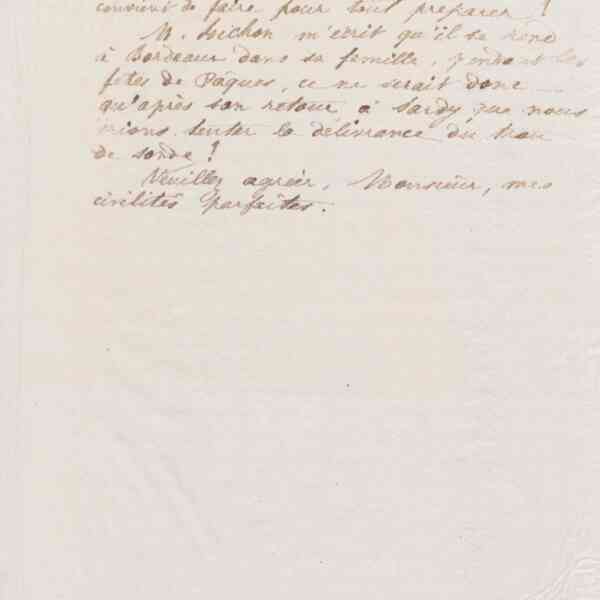 convient de faire pour tout préparer !
M. Sichon m'écrit qu'il se rend
à Bordeaux dans sa famille, pendant les
fêtes de Pâques, ce ne serait donc
qu'après son retour à Sardy, que nous
irions tenter la délivrance du trou
de sonde !
Veuillez agréer, Monsieur, mes
civilités parfaites.